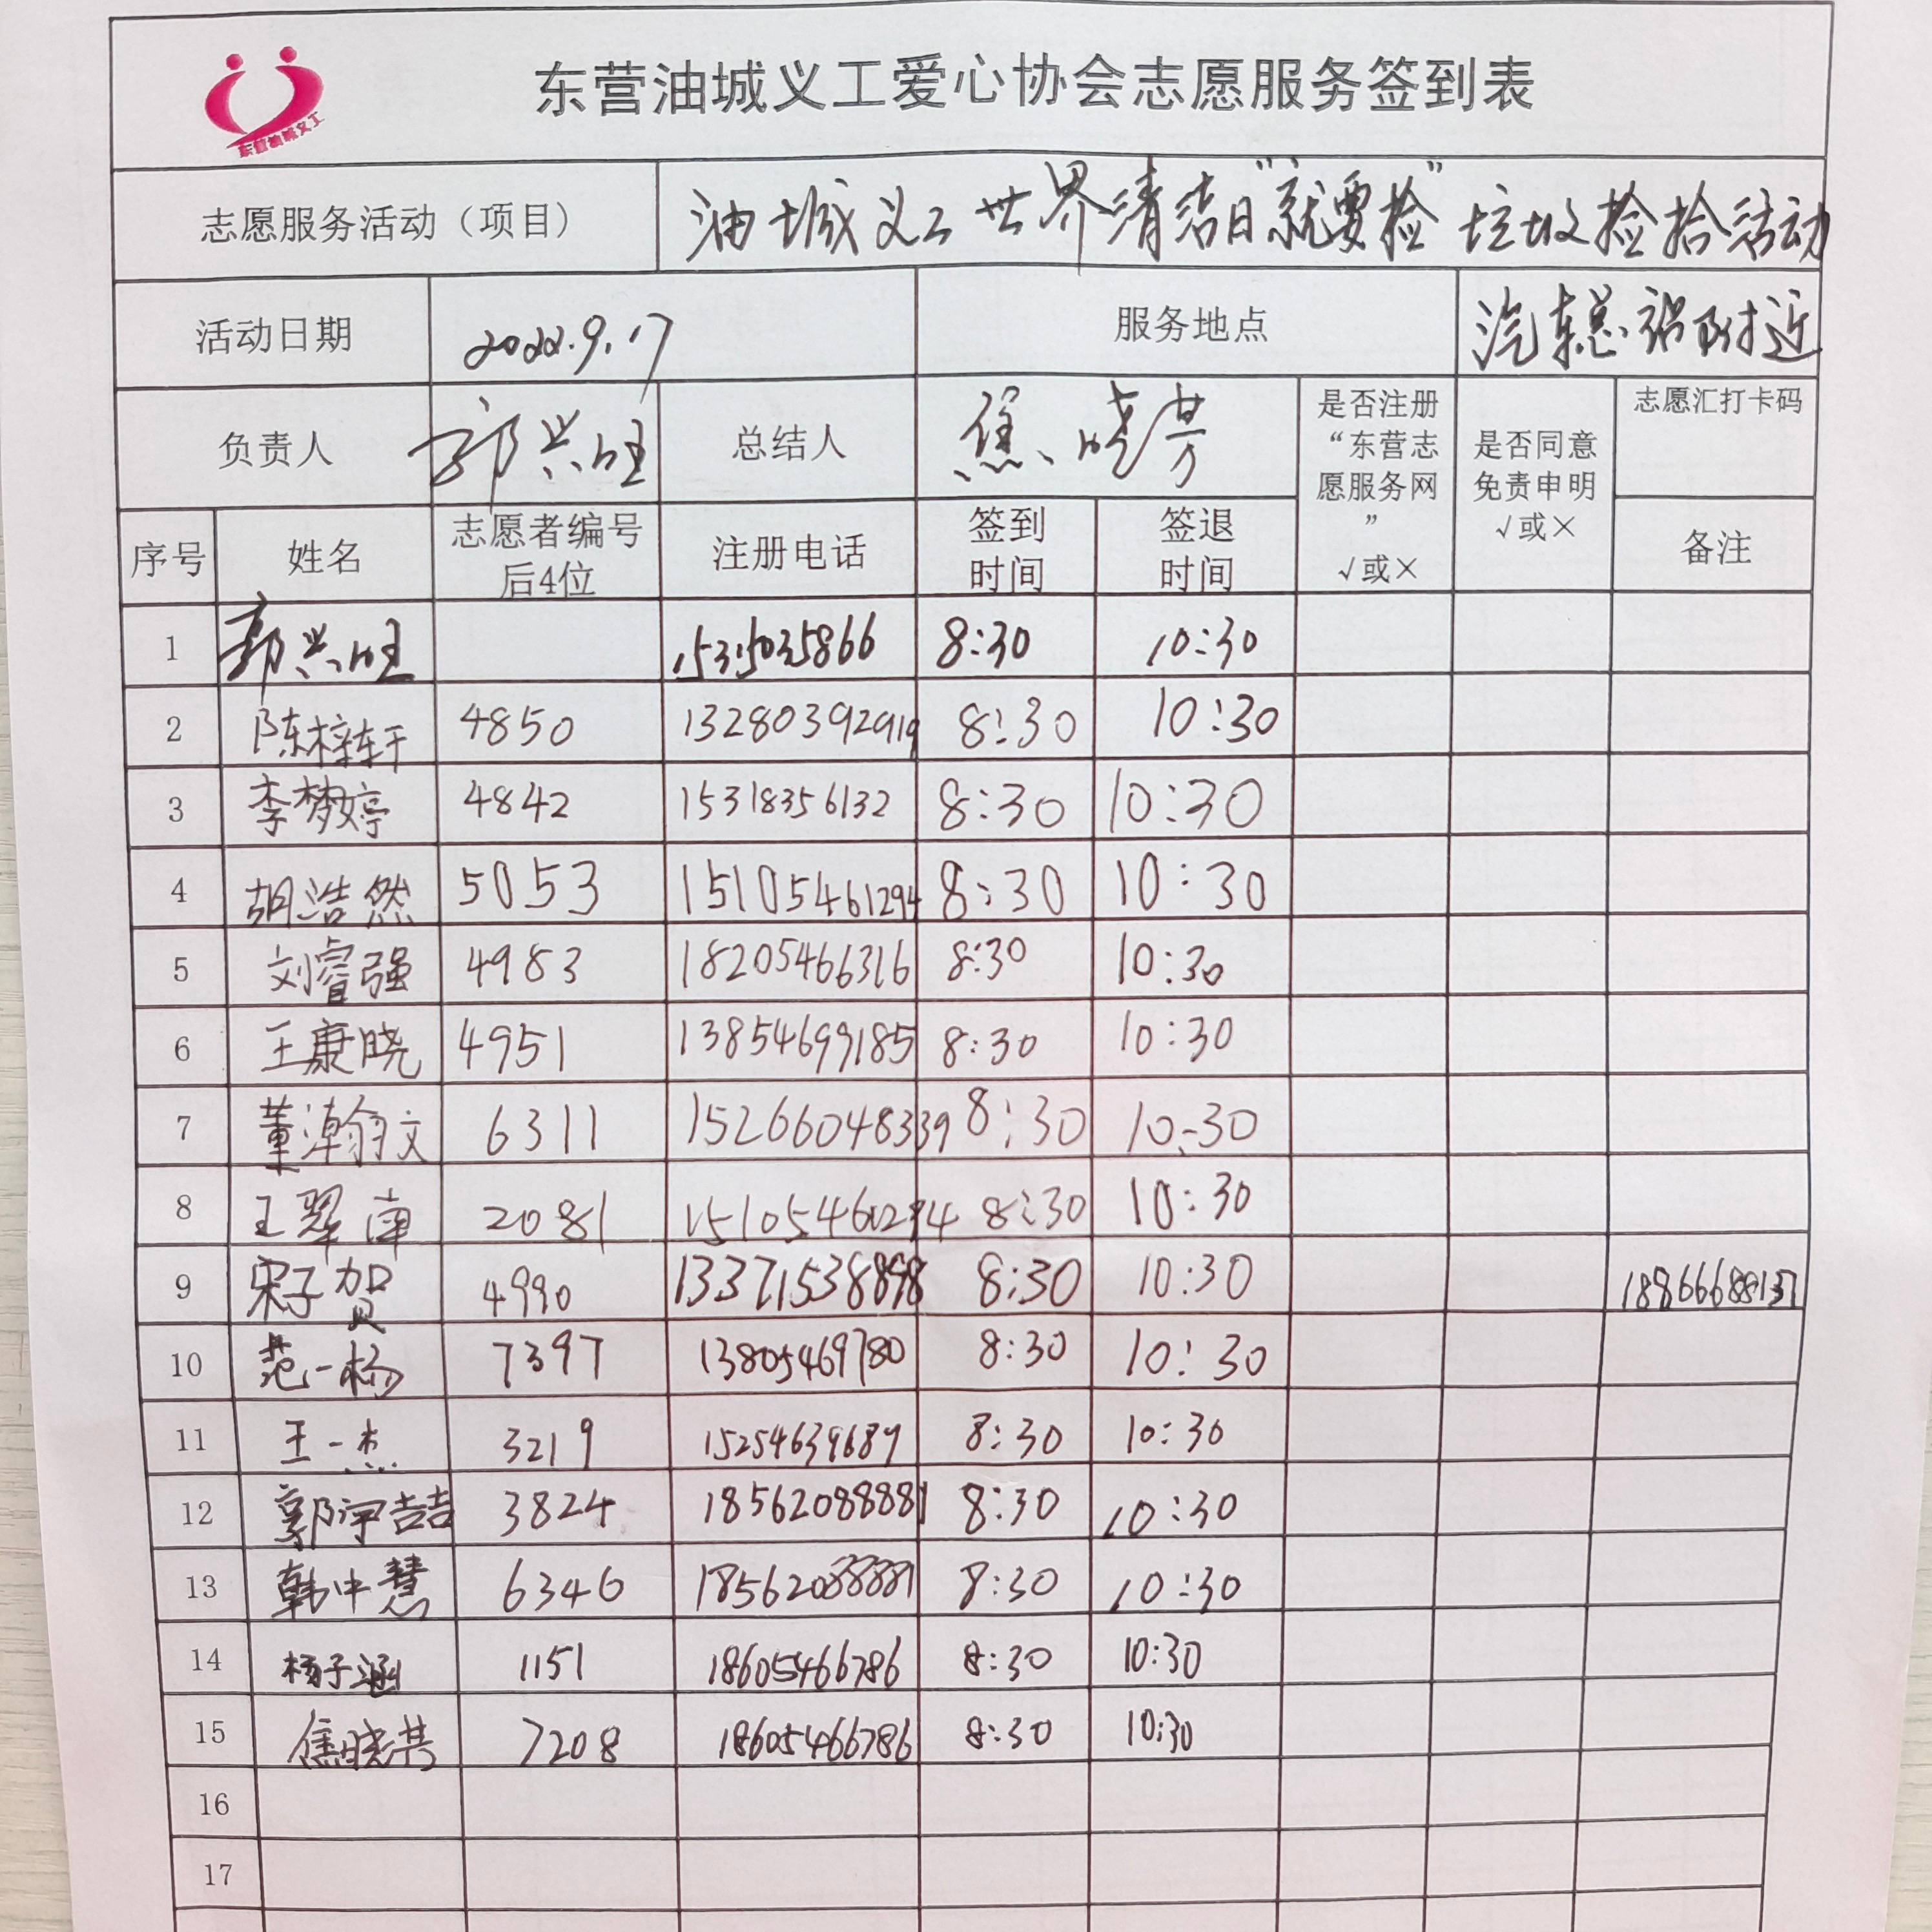 东营油城义工
东营油城义工爱心协会志愿服务签到表
志愿服务活动（项目） 油城义工世界清洁日"就要捡"垃圾捡拾活动
活动日期 2022.9.17 服务地点 汽车总站附近
负责人 郭兴旺 总结人 焦晓芳 是否注册“东营志愿服务网”√或× 是否同意免责申明√或× 志愿汇打卡码
序号 姓名 志愿者编号后4位 注册电话 签到时间 签退时间 备注
1 郭兴旺 15315035866 8:30 10:30
2 陈梓轩 4850 13280392919 8:30 10:30
3 李梦婷 4842 15318356132 8:30 10:30
4 胡浩然 5053 15105461294 8:30 10:30
5 刘睿强 4983 18205466316 8:30 10:30
6 王康晓 4951 13854699185 8:30 10:30
7 董瀚文 6311 15266048339 8:30 10:30
8 王翠南 2081 8:30 10:30
9 宋子贺 4990 13371538898 8:30 10:30
10 范一杨 7397 13805469780 8:30 10:30
11 王一杰 3219 15254639689 8:30 10:30
12 郭宇喆 3824 18562088881 8:30 10:30
13 韩中慧 6346 18562088881 8:30 10:30
14 杨子涵 1151 18605466786 8:30 10:30
15 焦晓芳 7208 18605466786 8:30 10:30
16
17